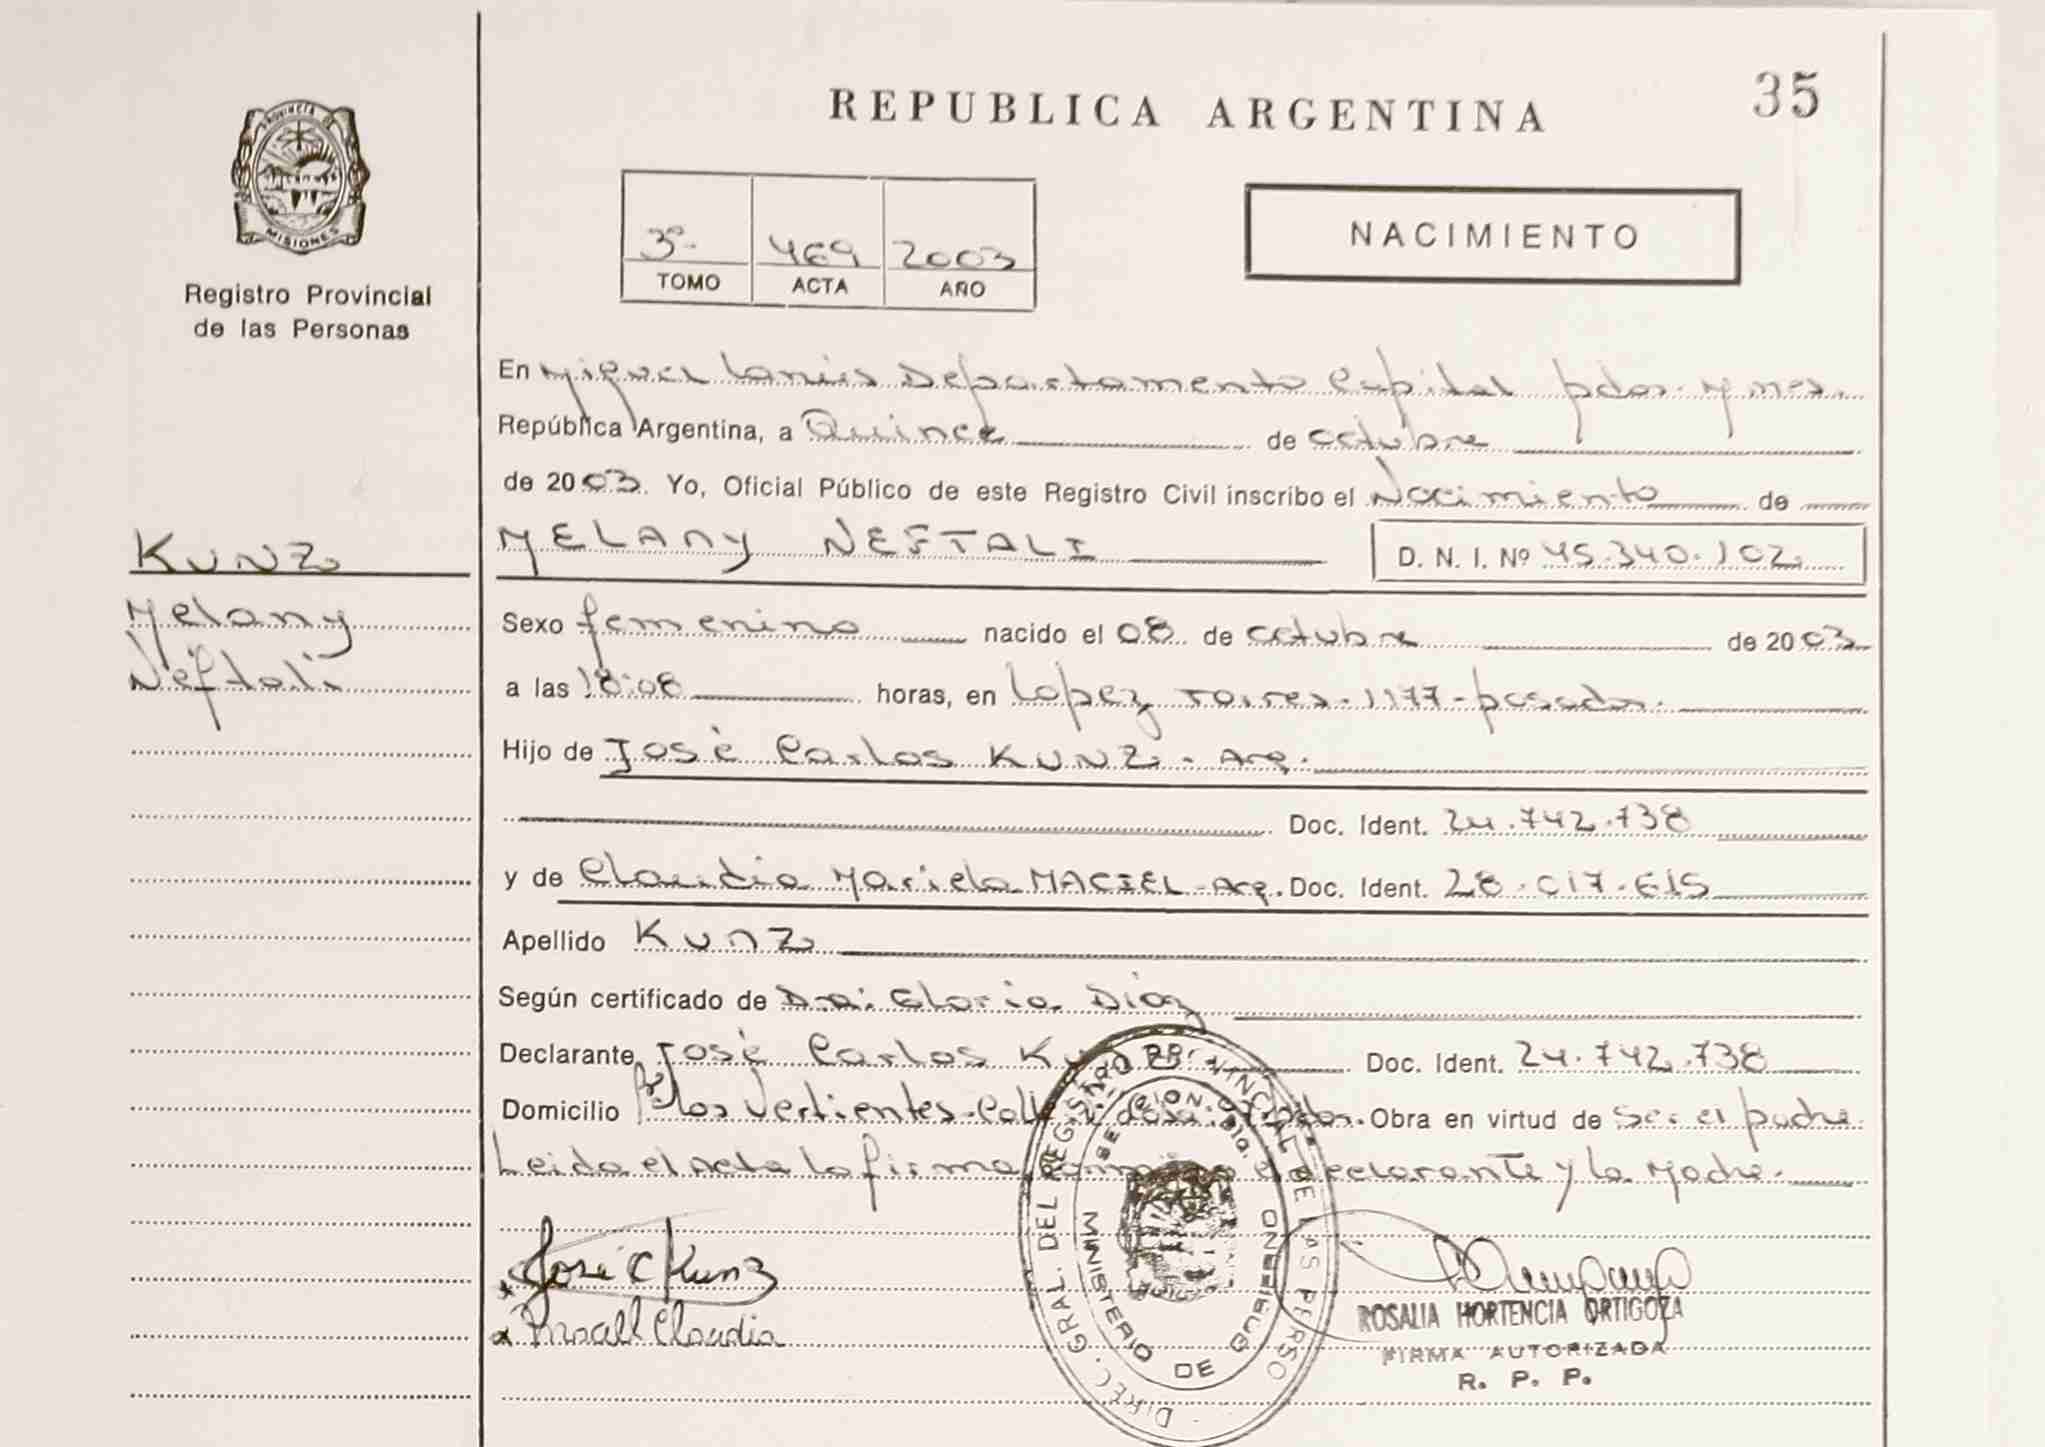 PROVINCIA DE
MISIONES
Registro Provincial
de las Personas
REPUBLICA ARGENTINA
35
3º 469 2003
TOMO ACTA AÑO
NACIMIENTO
En Miguel Lanús Departamento Capital pdas. y mnes.
República Argentina, a Quince de octubre
de 2003. Yo, Oficial Público de este Registro Civil inscribo el Nacimiento de
KUNZ
Melany
Neftali
MELANY NEFTALI D. N. I. Nº 45.340.102
Sexo femenino nacido el 08 de octubre de 2003
a las 18:08 horas, en Lopez Torres. 1177-posadas.
Hijo de José Carlos KUNZ - Arg.
Doc. Ident. 24.742.738
y de Claudia Mariela MACIEL - Arg. Doc. Ident. 28.017.615
Apellido KUNZ
Según certificado de Dra: Gloria Diaz
Declarante José Carlos Doc. Ident. 24.742.738
Domicilio los Vertientes - Calle Obra en virtud de Ser el padre
Leida el Acta la firma el declarante y la Madre.
José C Kunz
Claudia
DIREC. GRAL. DEL REGISTRO PROVINCIAL DE LAS PERSO
MINISTERIO DE GOBIERNO
ROSALIA HORTENCIA ORTIGOZA
FIRMA AUTORIZADA
R. P. P.